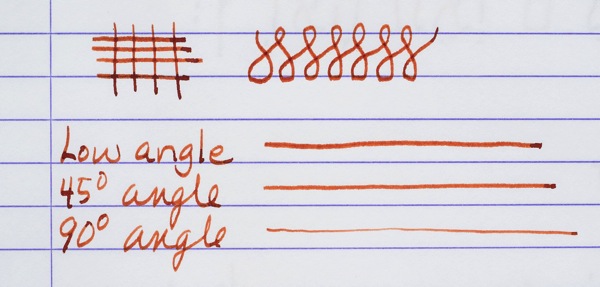 Low angle
45° angle
90° angle